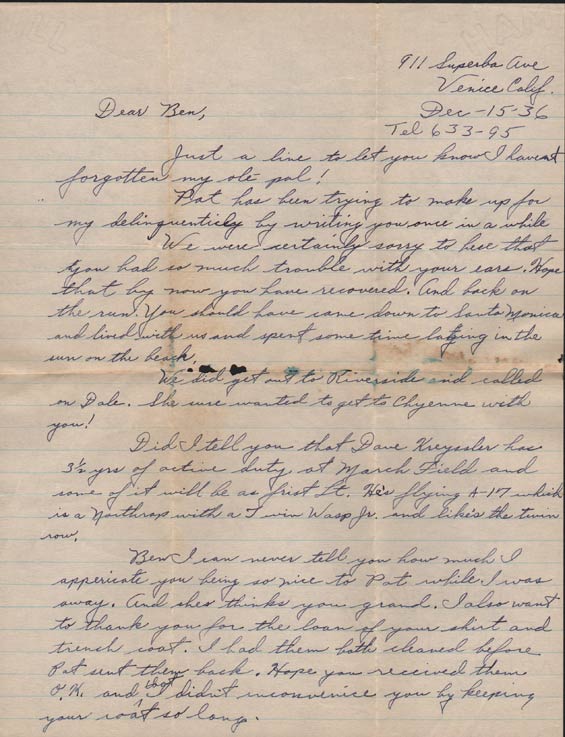 911 Superba Ave
Venice Calif.
Dec-15-36
Tel 633-95
Dear Ben,
Just a line to let you know I havent
forgotten my ole pal!
Pat has been trying to make up for
my delinquenticy by writing you once in a while
We were certainly sorry to hese that
you had so much trouble with your ears. Hope
that by now you have recovered. And back on
the run. You should have came down to Santa Monica
and lived with us and spent some time laying in the
sun on the beach.
We did get out to Riverside and called
on Dale. She sure wanted to get to Chyenne with
you!
Did I tell you that Dave Kreyssler has
3½ yrs of active duty at March Field and
some of it will be as frist Lt. He's flying A-17 which
is a Northrop with a Twin Wasp Jr. and like's the twin
row.
Ben I can never tell you how much I
appericate you being so nice to Pat while I was
away. And shes thinks you grand. I also want
to thank you for the loan of your shirt and
trench coat. I had them both cleaned before
Pat sent them back. Hope you received them
O.K. and that I didn't inconvenice you by keeping
your coat so long.